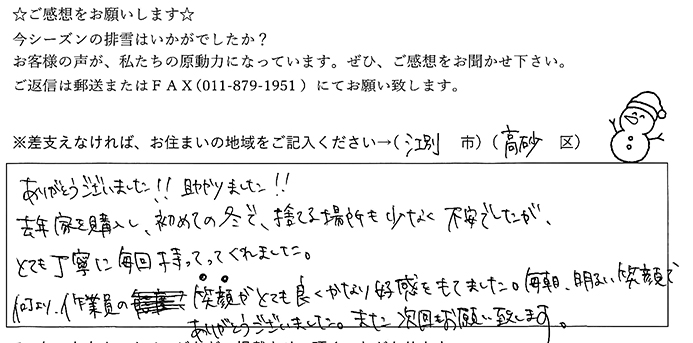 ☆ご感想をお願いします☆
今シーズンの排雪はいかがでしたか?
お客様の声が、私たちの原動力になっています。ぜひ、ご感想をお聞かせ下さい。
ご返信は郵送またはFAX(011-879-1951)にてお願い致します。
※差支えなければ、お住まいの地域をご記入ください→(江別 市)(高砂 区)
ありがとうございました!! 助かりました!!
去年家を購入し、初めての冬で、捨てる場所も少なく不安でしたが、
とても丁寧に毎回持ってってくれました。
何より、作業員の笑顔がとても良くかなり好感をもてました。毎朝、明るい笑顔で
ありがとうございました。また次回もお願い致します。